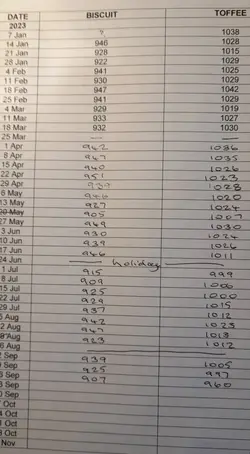 DATE BISCUIT TOFFEE
2023
7 Jan 1038
14 Jan 946 1028
21 Jan 928 1015
28 Jan 922 1029
4 Feb 941 1025
11 Feb 930 1029
18 Feb 947 1042
25 Feb 941 1029
4 Mar 929 1019
11 Mar 933 1027
18 Mar 932 1030
25 Mar — —
1 Apr 942 1036
8 Apr 947 1035
15 Apr 940 1026
22 Apr 951 1023
29 Apr 1028
6 May 1020
13 May 927 1024
20 May 905 1007
27 May 949 1030
3 Jun 930 1024
10 Jun 939 1026
17 Jun 946 1011
24 Jun — holiday —
1 Jul 915 999
8 Jul 909 1006
15 Jul 925 1000
22 Jul 929 1015
29 Jul 937 1012
Aug 942 1023
2 Aug 947 1013
Aug 923 1012
6 Aug
2 Sep 939 1005
Sep 925 997
Sep 907 960
Sep
Oct
Oct
Oct
Oct
Nov